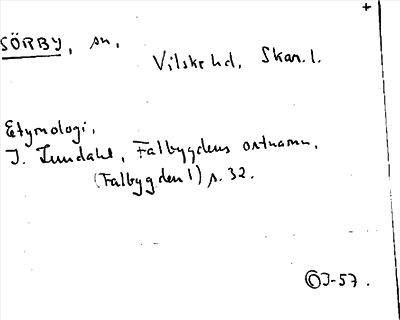 SÖRBY, sn,
Vilske hd, Skar. l.
Etymologi,
I. Lundahl, Falbygdens ortnamn,
(Falbygden 1) s. 32.
ⒸJ-57.